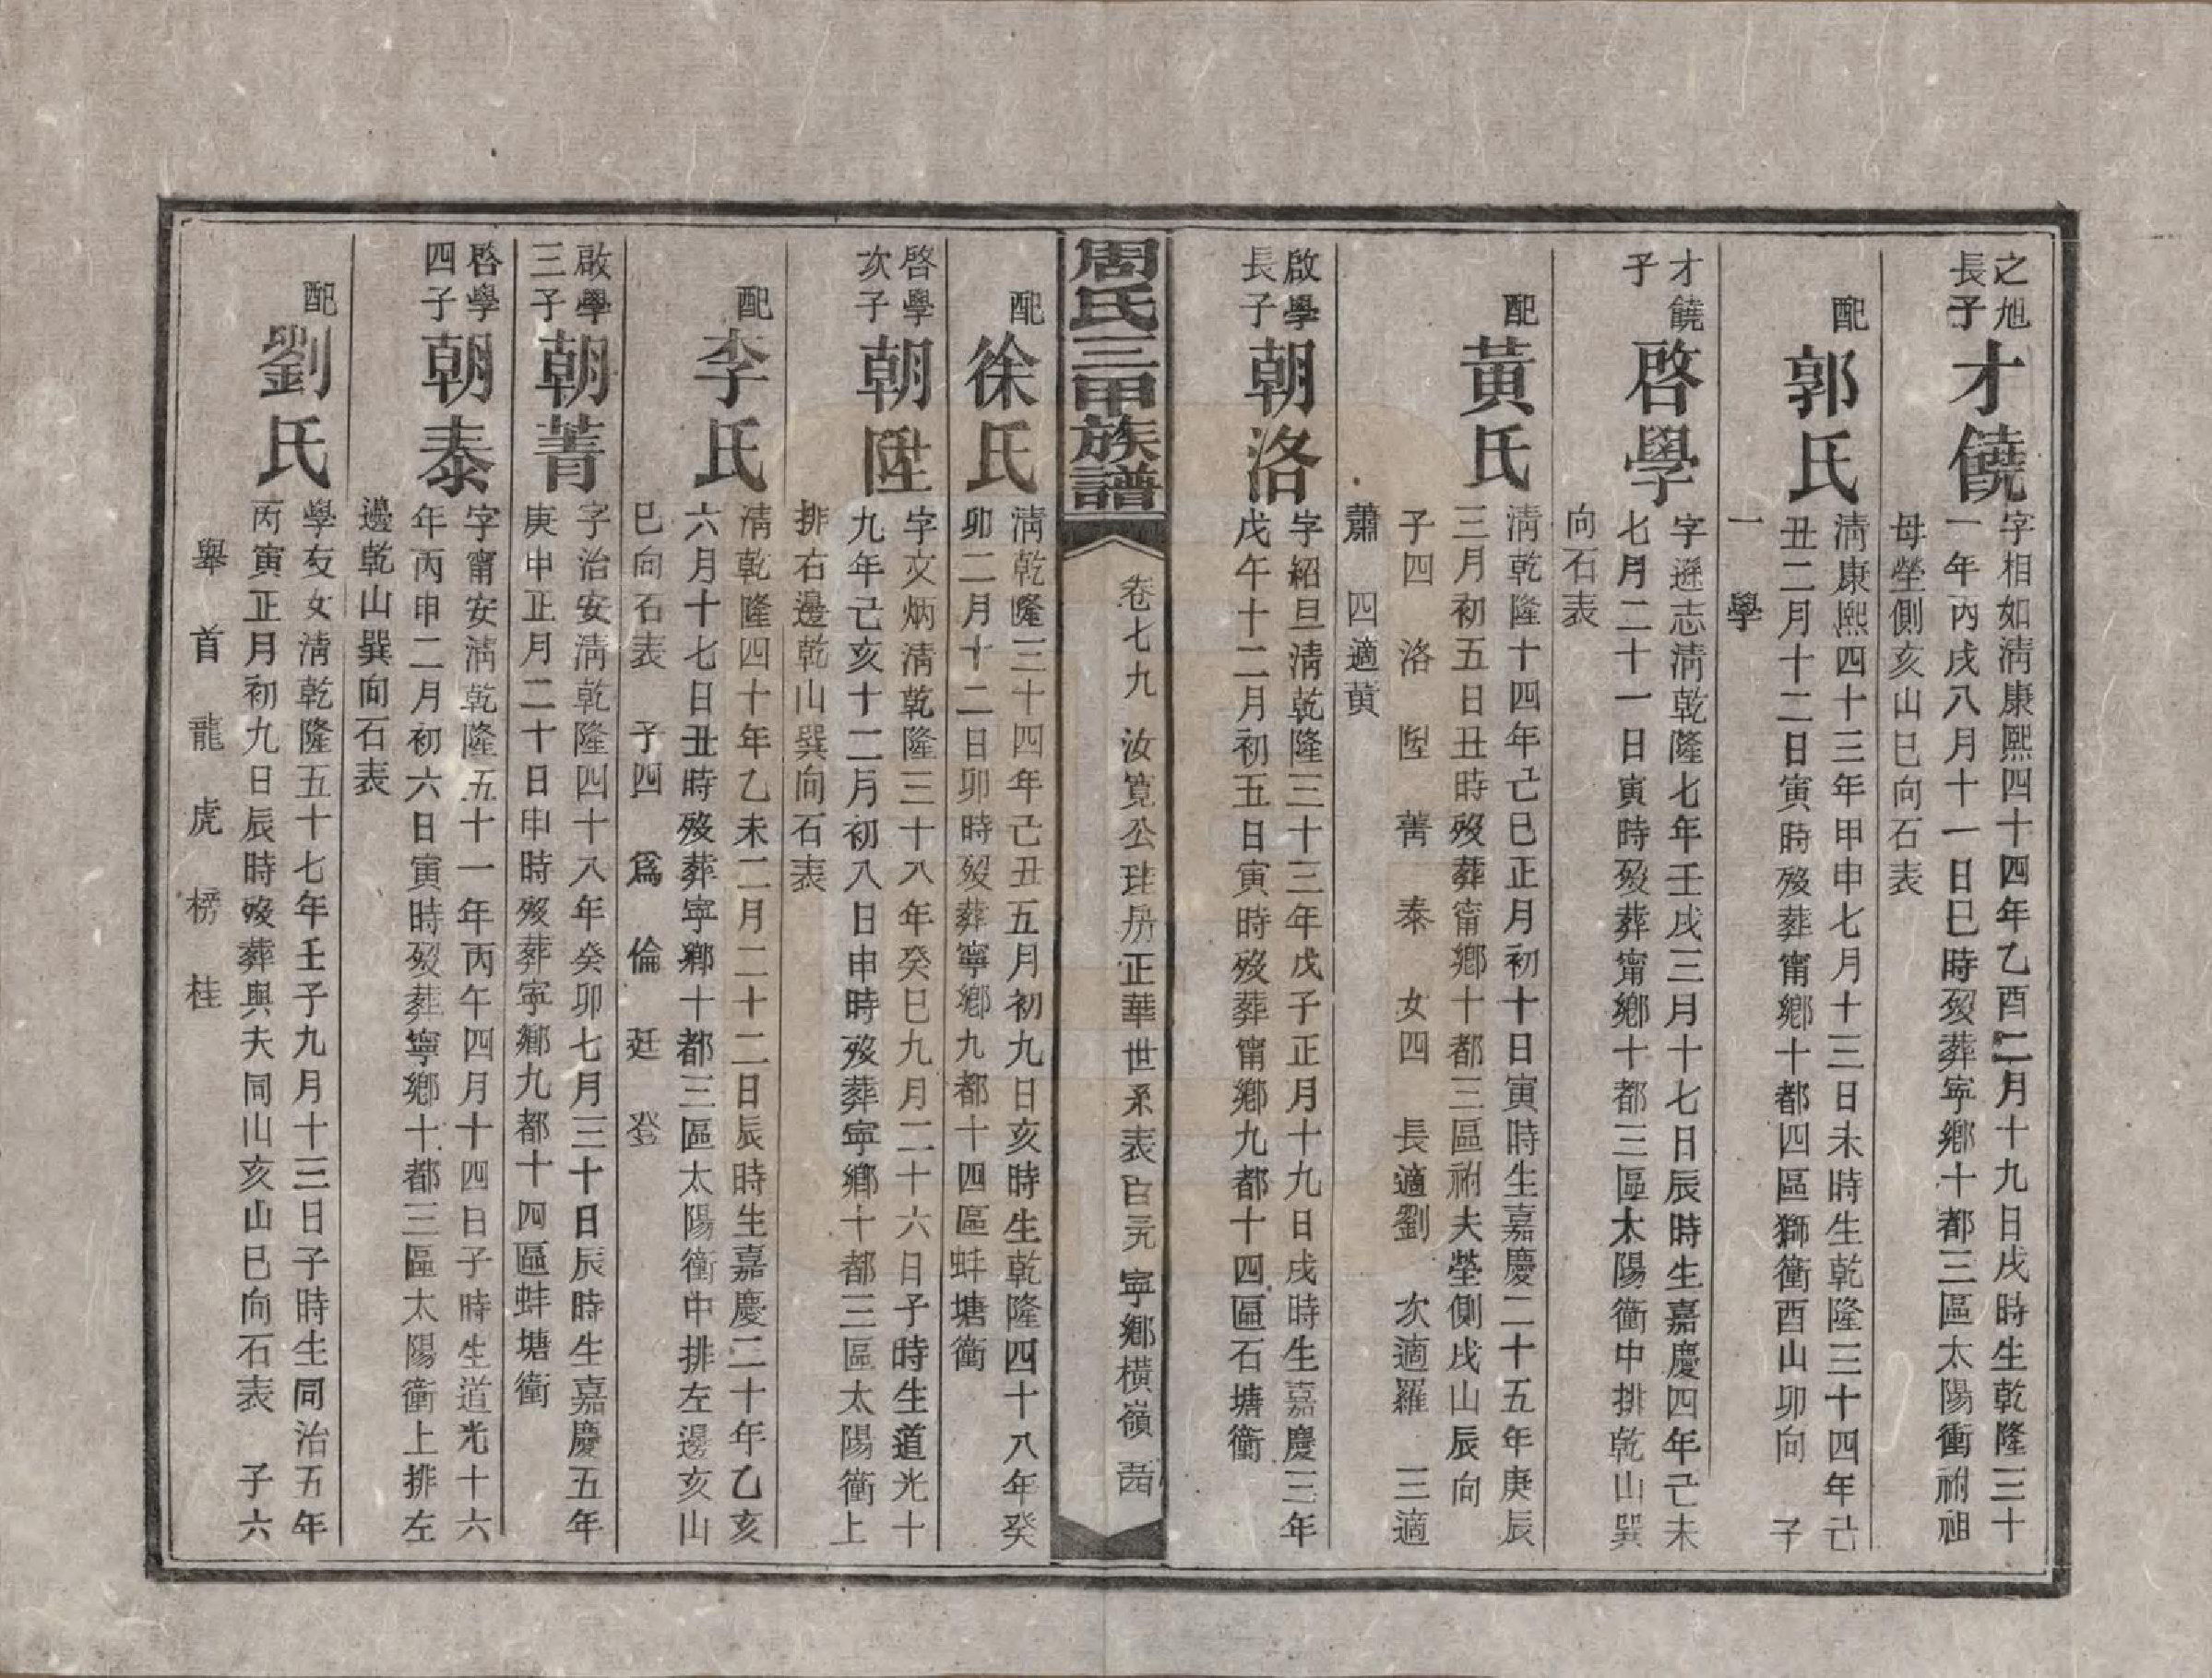 之旭
長子
才饒
字相如淸康熙四十四年乙酉二月十九日戌時生乾隆三十
一年丙戌八月十一日巳時歿葬寧鄉十都三區太陽衝祔祖
母塋側亥山巳向石表
配
郭氏
淸康熙四十三年甲申七月十三日未時生乾隆三十四年己
丑二月十二日寅時歿葬甯鄉十都四區獅衝酉山卯向 子
一 學
才饒
子
啓學
字遜志淸乾隆七年壬戌三月十七日辰時生嘉慶四年己未
七月二十一日寅時歿葬甯鄉十都三區太陽衝中排乾山巽
向石表
配
黃氏
淸乾隆十四年己巳正月初十日寅時生嘉慶二十五年庚辰
三月初五日丑時歿葬甯鄉十都三區祔夫塋側戌山辰向
子四 洛 陞 菁 泰 女四 長適劉 次適羅 三適
蕭 四適黄
啟學
長子
朝洛
字紹旦淸乾隆三十三年戊子正月十九日戌時生嘉慶三年
戊午十二月初五日寅時歿葬甯鄉九都十四區石塘衝
周氏三甲族譜
卷七九 汝寬公珪房正華世系表 百元 寧鄉橫嶺
配
徐氏
淸乾隆三十四年己丑五月初九日亥時生乾隆四十八年癸
卯二月十二日卯時歿葬寧鄉九都十四區蚌塘衝
啓學
次子
朝陞
字文炳淸乾隆三十八年癸巳九月二十六日子時生道光十
九年己亥十二月初八日申時歿葬寧鄉十都三區太陽衝上
排右邊乾山巽向石表
配
李氏
淸乾隆四十年乙未二月二十二日辰時生嘉慶二十年乙亥
六月十七日丑時歿葬寧鄉十都三區太陽衝中排左邊亥山
巳向石表 子四 爲 倫 廷 登
啟學
三子
朝菁
字治安淸乾隆四十八年癸卯七月三十日辰時生嘉慶五年
庚申正月二十日申時歿葬寧鄉九都十四區蚌塘衝
啓學
四子
朝泰
字甯安淸乾隆五十一年丙午四月十四日子時生道光十六
年丙申二月初六日寅時歿葬寧鄉十都三區太陽衝上排左
邊乾山巽向石表
配
劉氏
學友女淸乾隆五十七年壬子九月十三日子時生同治五年
丙寅正月初九日辰時歿葬與夫同山亥山巳向石表 子六
舉 首 龍 虎 榜 桂